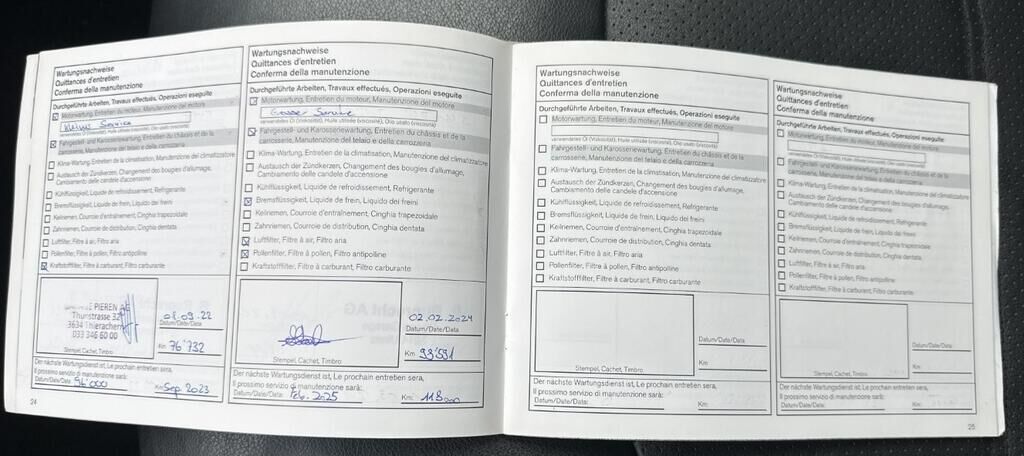 Wartungsnachweise
Quittances d'entretien
Conferma della manutenzione
Durchgeführte Arbeiten, Travaux effectués, Operazioni eseguite
Motorwartung, Entretien du moteur, Manutenzione del motore
Service
verwendetes Öl (Viskosität), Huile utilisée (viscosité), Olio usato (viscosità)
Fahrgestell- und Karosseriewartung, Entretien du châssis et de la
carrosserie, Manutenzione del telaio e della carrozzeria
Klima-Wartung, Entretien de la climatisation, Manutenzione del climatizzatore
Austausch der Zündkerzen, Changement des bougies d'allumage,
Cambiamento delle candele d'accensione
Kühlflüssigkeit, Liquide de refroidissement, Refrigerante
Bremsflüssigkeit, Liquide de frein, Liquido dei freini
Keilriemen, Courroie d'entraînement, Cinghia trapezoidale
Zahnriemen, Courroie de distribution, Cinghia dentata
Luftfilter, Filtre à air, Filtro aria
Pollenfilter, Filtre à pollen, Filtro antipolline
Kraftstofffilter, Filtre à carburant, Filtro carburante
PIEREN
Thunstrasse
3634 Thierachern
033 346 60 00
Stempel, Cachet, Timbro
01.09.22
Datum/Date/Data
Km 76'732
Der nächste Wartungsdienst ist, Le prochain entretien sera,
Il prossimo servizio di manutenzione sarà:
Datum/Date/Data 96'000 Km Sep. 2023
24
Wartungsnachweise
Quittances d'entretien
Conferma della manutenzione
Durchgeführte Arbeiten, Travaux effectués, Operazioni eseguite
Motorwartung, Entretien du moteur, Manutenzione del motore
Grosser Service
verwendetes Öl (Viskosität), Huile utilisée (viscosité), Olio usato (viscosità)
Fahrgestell- und Karosseriewartung, Entretien du châssis et de la
carrosserie, Manutenzione del telaio e della carrozzeria
Klima-Wartung, Entretien de la climatisation, Manutenzione del climatizzatore
Austausch der Zündkerzen, Changement des bougies d'allumage,
Cambiamento delle candele d'accensione
Kühlflüssigkeit, Liquide de refroidissement, Refrigerante
Bremsflüssigkeit, Liquide de frein, Liquido dei freini
Keilriemen, Courroie d'entraînement, Cinghia trapezoidale
Zahnriemen, Courroie de distribution, Cinghia dentata
Luftfilter, Filtre à air, Filtro aria
Pollenfilter, Filtre à pollen, Filtro antipolline
Kraftstofffilter, Filtre à carburant, Filtro carburante
Stempel, Cachet, Timbro
02.02.2024
Datum/Date/Data
Km 93'591
Der nächste Wartungsdienst ist, Le prochain entretien sera,
Il prossimo servizio di manutenzione sarà:
Datum/Date/Data: Feb. 2025 Km: 118000
Wartungsnachweise
Quittances d'entretien
Conferma della manutenzione
Durchgeführte Arbeiten, Travaux effectués, Operazioni eseguite
Motorwartung, Entretien du moteur, Manutenzione del motore
verwendetes Öl (Viskosität), Huile utilisée (viscosité), Olio usato (viscosità)
Fahrgestell- und Karosseriewartung, Entretien du châssis et de la
carrosserie, Manutenzione del telaio e della carrozzeria
Klima-Wartung, Entretien de la climatisation, Manutenzione del climatizzatore
Austausch der Zündkerzen, Changement des bougies d'allumage,
Cambiamento delle candele d'accensione
Kühlflüssigkeit, Liquide de refroidissement, Refrigerante
Bremsflüssigkeit, Liquide de frein, Liquido dei freini
Keilriemen, Courroie d'entraînement, Cinghia trapezoidale
Zahnriemen, Courroie de distribution, Cinghia dentata
Luftfilter, Filtre à air, Filtro aria
Pollenfilter, Filtre à pollen, Filtro antipolline
Kraftstofffilter, Filtre à carburant, Filtro carburante
Stempel, Cachet, Timbro
Datum/Date/Data
Km
Der nächste Wartungsdienst ist, Le prochain entretien sera,
Il prossimo servizio di manutenzione sarà:
Datum/Date/Data: Km:
Wartungsnachweise
Quittances d'entretien
Conferma della manutenzione
Durchgeführte Arbeiten, Travaux effectués, Operazioni eseguite
Motorwartung, Entretien du moteur, Manutenzione del motore
verwendetes Öl (Viskosität), Huile utilisée (viscosité), Olio usato (viscosità)
Fahrgestell- und Karosseriewartung, Entretien du châssis et de la
carrosserie, Manutenzione del telaio e della carrozzeria
Klima-Wartung, Entretien de la climatisation, Manutenzione del climatizzatore
Austausch der Zündkerzen, Changement des bougies d'allumage,
Cambiamento delle candele d'accensione
Kühlflüssigkeit, Liquide de refroidissement, Refrigerante
Bremsflüssigkeit, Liquide de frein, Liquido dei freini
Keilriemen, Courroie d'entraînement, Cinghia trapezoidale
Zahnriemen, Courroie de distribution, Cinghia dentata
Luftfilter, Filtre à air, Filtro aria
Pollenfilter, Filtre à pollen, Filtro antipolline
Kraftstofffilter, Filtre à carburant, Filtro carburante
Stempel, Cachet, Timbro
Datum/Date/Data
Km
Der nächste Wartungsdienst ist, Le prochain entretien sera,
Il prossimo servizio di manutenzione sarà:
Datum/Date/Data: Km:
25